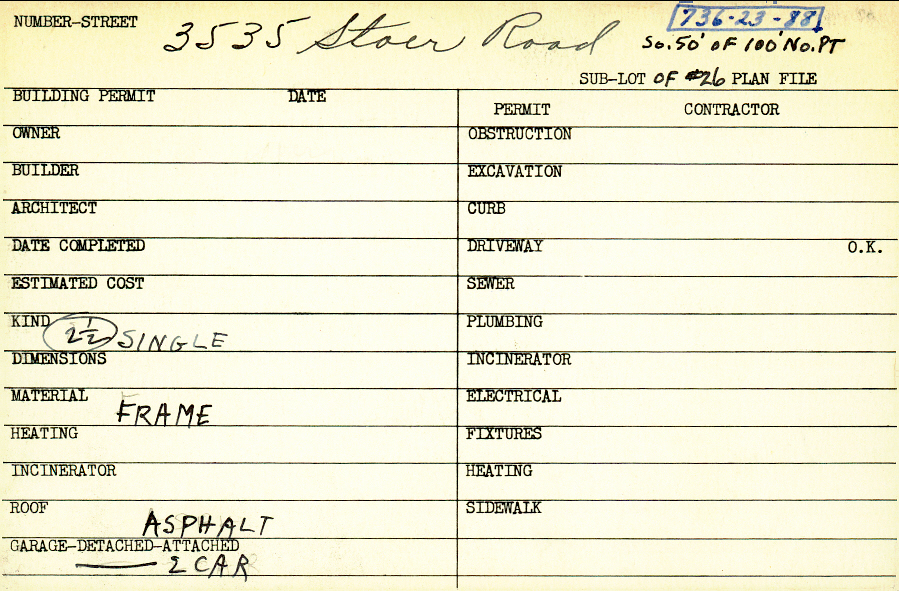 NUMBER-STREET 3535 Stoer Road
736-23-88
So. 50' OF 100' No. PT
SUB-LOT OF #26 PLAN FILE
BUILDING PERMIT DATE
OWNER
BUILDER
ARCHITECT
DATE COMPLETED
ESTIMATED COST
KIND 2½ SINGLE
DIMENSIONS
MATERIAL FRAME
HEATING
INCINERATOR
ROOF ASPHALT
GARAGE-DETACHED-ATTACHED
2 CAR
PERMIT CONTRACTOR
OBSTRUCTION
EXCAVATION
CURB
DRIVEWAY O.K.
SEWER
PLUMBING
INCINERATOR
ELECTRICAL
FIXTURES
HEATING
SIDEWALK